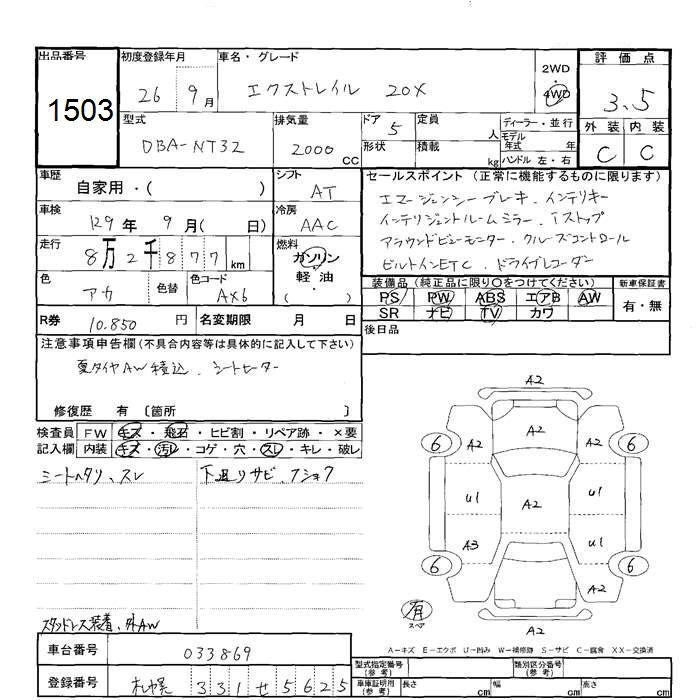 出品番号 初度登録年月 車名・グレード 評価点
1503 26 9月 エクストレイル 20X 2WD 4WD 3.5
型式 排気量 ドア 5 定員 人 ディーラー・並行 外装 内装
DBA-NT32 2000 CC 形状 積載 kg モデル年式 年 ハンドル 左・右 C C
車歴 自家用・( ) シフト AT セールスポイント (正常に機能するものに限ります)
エマージェンシーブレーキ、インテリキー
車検 29年 9月( 日) 冷房 AAC インテリジェントルームミラー、Iストップ
走行 8万2千877km 燃料 ガソリン 軽油 ( ・ ) アラウンドビューモニター、クルーズコントロール
ビルトインETC、ドライブレコーダー
色 アカ 色替 色コード AX6 装備品(純正品に限り〇をつけてください) 新車保証書
PS PW ABS エアB AW 有・無
SR ナビ TV カワ
R券 10.850円 名変期限 月 日 後日品
注意事項申告欄(不具合内容等は具体的に記入して下さい)
夏タイヤAW積込、シートヒーター
修復歴 有 〔箇所 〕
検査員 FW キズ・飛石・ヒビ割・リペア跡・×要
記入欄 内装 キズ・汚レ・コゲ・穴・スレ・キレ・破レ
シートヘタリ、スレ 下廻りサビ、
A2
6 A2 A2 A2 6
U1 A2 U1
A3 U1
6 A2 6
有 スペア A2
スタッドレス装着、外AW
A-キズ E-エクボ U-凹み W-補修跡 S-サビ C-腐食 XX-交換済
車台番号 033869
型式指定番号(参考) 類別区分番号(参考)
登録番号 札幌 331 せ 5625
車庫証明用(参考) 長さ cm 幅 cm 高さ cm